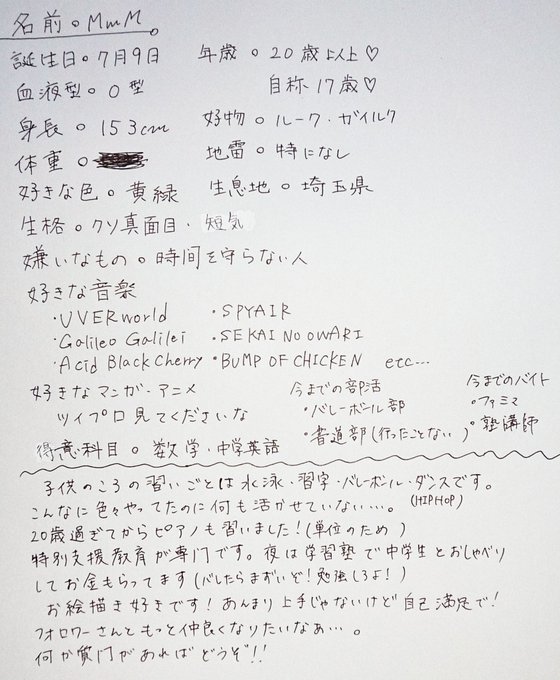 名前。MmM。
誕生日。7月9日　年歳。20歳以上♡
血液型。O型　自称17歳♡
身長。153cm　好物。ルーク・ガイルク
体重。　地雷。特になし
好きな色。黄緑　生息地。埼玉県
生格。クソ真面目・短気
嫌いなもの。時間を守らない人
好きな音楽
・UVERworld　・SPYAIR
・Galileo Galilei　・SEKAI NO OWARI
・Acid Black Cherry　・BUMP OF CHICKEN　etc...
好きなマンガ・アニメ　今までの部活　今までのバイト
ツイプロ見てくださいな　・バレーボール部　・ファミマ
・書道部(行ったことない)　・塾講師
得意科目。数学・中学英語
子供のころの習いごとは水泳・習字・バレーボール・ダンスです。
(HIPHOP)
こんなに色々やってたのに何も活かせていない…。
20歳過ぎてからピアノも習いました!(単位のため)
特別支援教育が専門です。夜は学習塾で中学生とおしゃべり
してお金もらってます(バレたらまずいぞ!勉強しろよ!)
お絵描き好きです!あんまり上手じゃないけど自己満足で!
フォロワーさんともっと仲良くなりたいなぁ…。
何か質問があればどうぞ!!